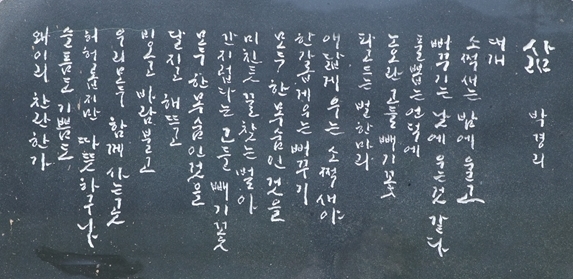 삶
박경리
대개
소쩍새는 밤에 울고
뻐꾸기는 낮에 우는 것 같다
풀 뽑는 언덕에
노오란 고들빼기꽃
파고드는 벌 한 마리
애닯게 우는 소쩍새야
한가롭게 우는 뻐꾸기
모두 한 목숨인 것을
미친 듯 꿀 찾는 벌아
간지럽다는 고들빼기꽃
모두 한 목숨인 것을
달 지고 해 뜨고
비 오고 바람 불고
우리 모두 함께 사는 곳
허허롭지만 따뜻하구나
슬픔도 기쁨도
왜 이리 찬란한가